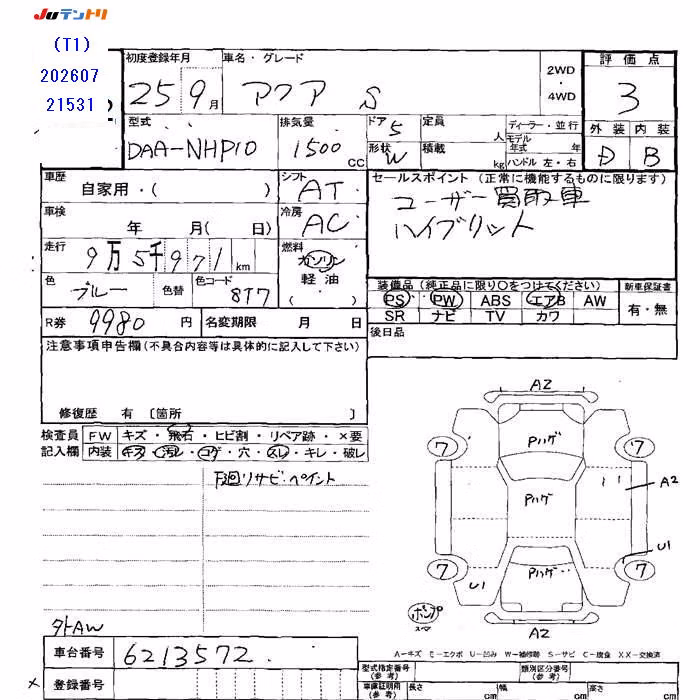 JUテントリ
(T1)
202607
21531
初度登録年月 車名・グレード 2WD ・ 4WD 評価点
25 9月 アクア S 3
型式 排気量 ドア 定員 人 ディーラー・並行 外装 内装
DAA-NHP10 1500 CC 5 形状 W 積載 kg モデル年式 年 ハンドル 左・右 D B
車歴 自家用・( ) シフト AT セールスポイント (正常に機能するものに限ります)
ユーザー買取車
車検 年 月( 日) 冷房 AC ハイブリット
走行 9万5千971km 燃料 ガソリン 軽油 ( )
色 ブルー 色替 色コード 8T7 装備品 (純正品に限り○をつけてください) 新車保証書
PS PW ABS エアB AW 有・無
R券 9980円 名変期限 月 日 SR ナビ TV カワ
後日品
注意事項申告欄(不具合内容等は具体的に記入して下さい)
修復歴 有 〔箇所 〕
検査員 FW キズ・飛石・ヒビ割・リペア跡・×要
記入欄 内装 キズ・汚レ・コゲ・穴・スレ・キレ・破レ
下廻リサビ・ペイント
A2
Pハゲ
7 7
A2
Pハゲ
U1
7 7
Pハゲ
U1
ポンプ
スペア
A2
外AW
A−キズ E−エクボ U−凹み W−補修跡 S−サビ C−腐食 XX−交換済
車台番号 6213572
型式指定番号(参考) 類別区分番号(参考)
× 登録番号 車庫証明用(参考) 長さ cm 幅 cm 高さ cm